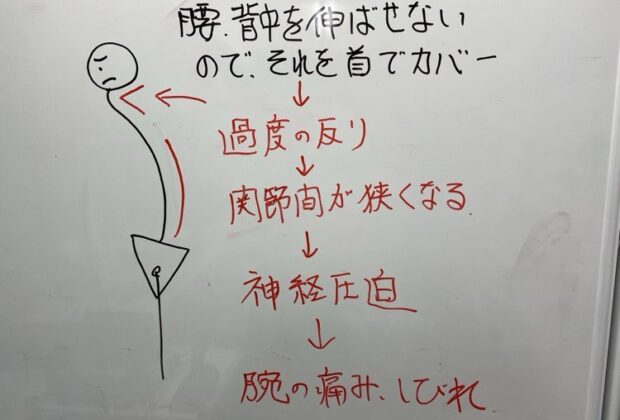 腰、背中を伸ばせない
ので、それを首でカバー
↓
過度の反り
↓
関節間が狭くなる
↓
神経圧迫
↓
腕の痛み、しびれ